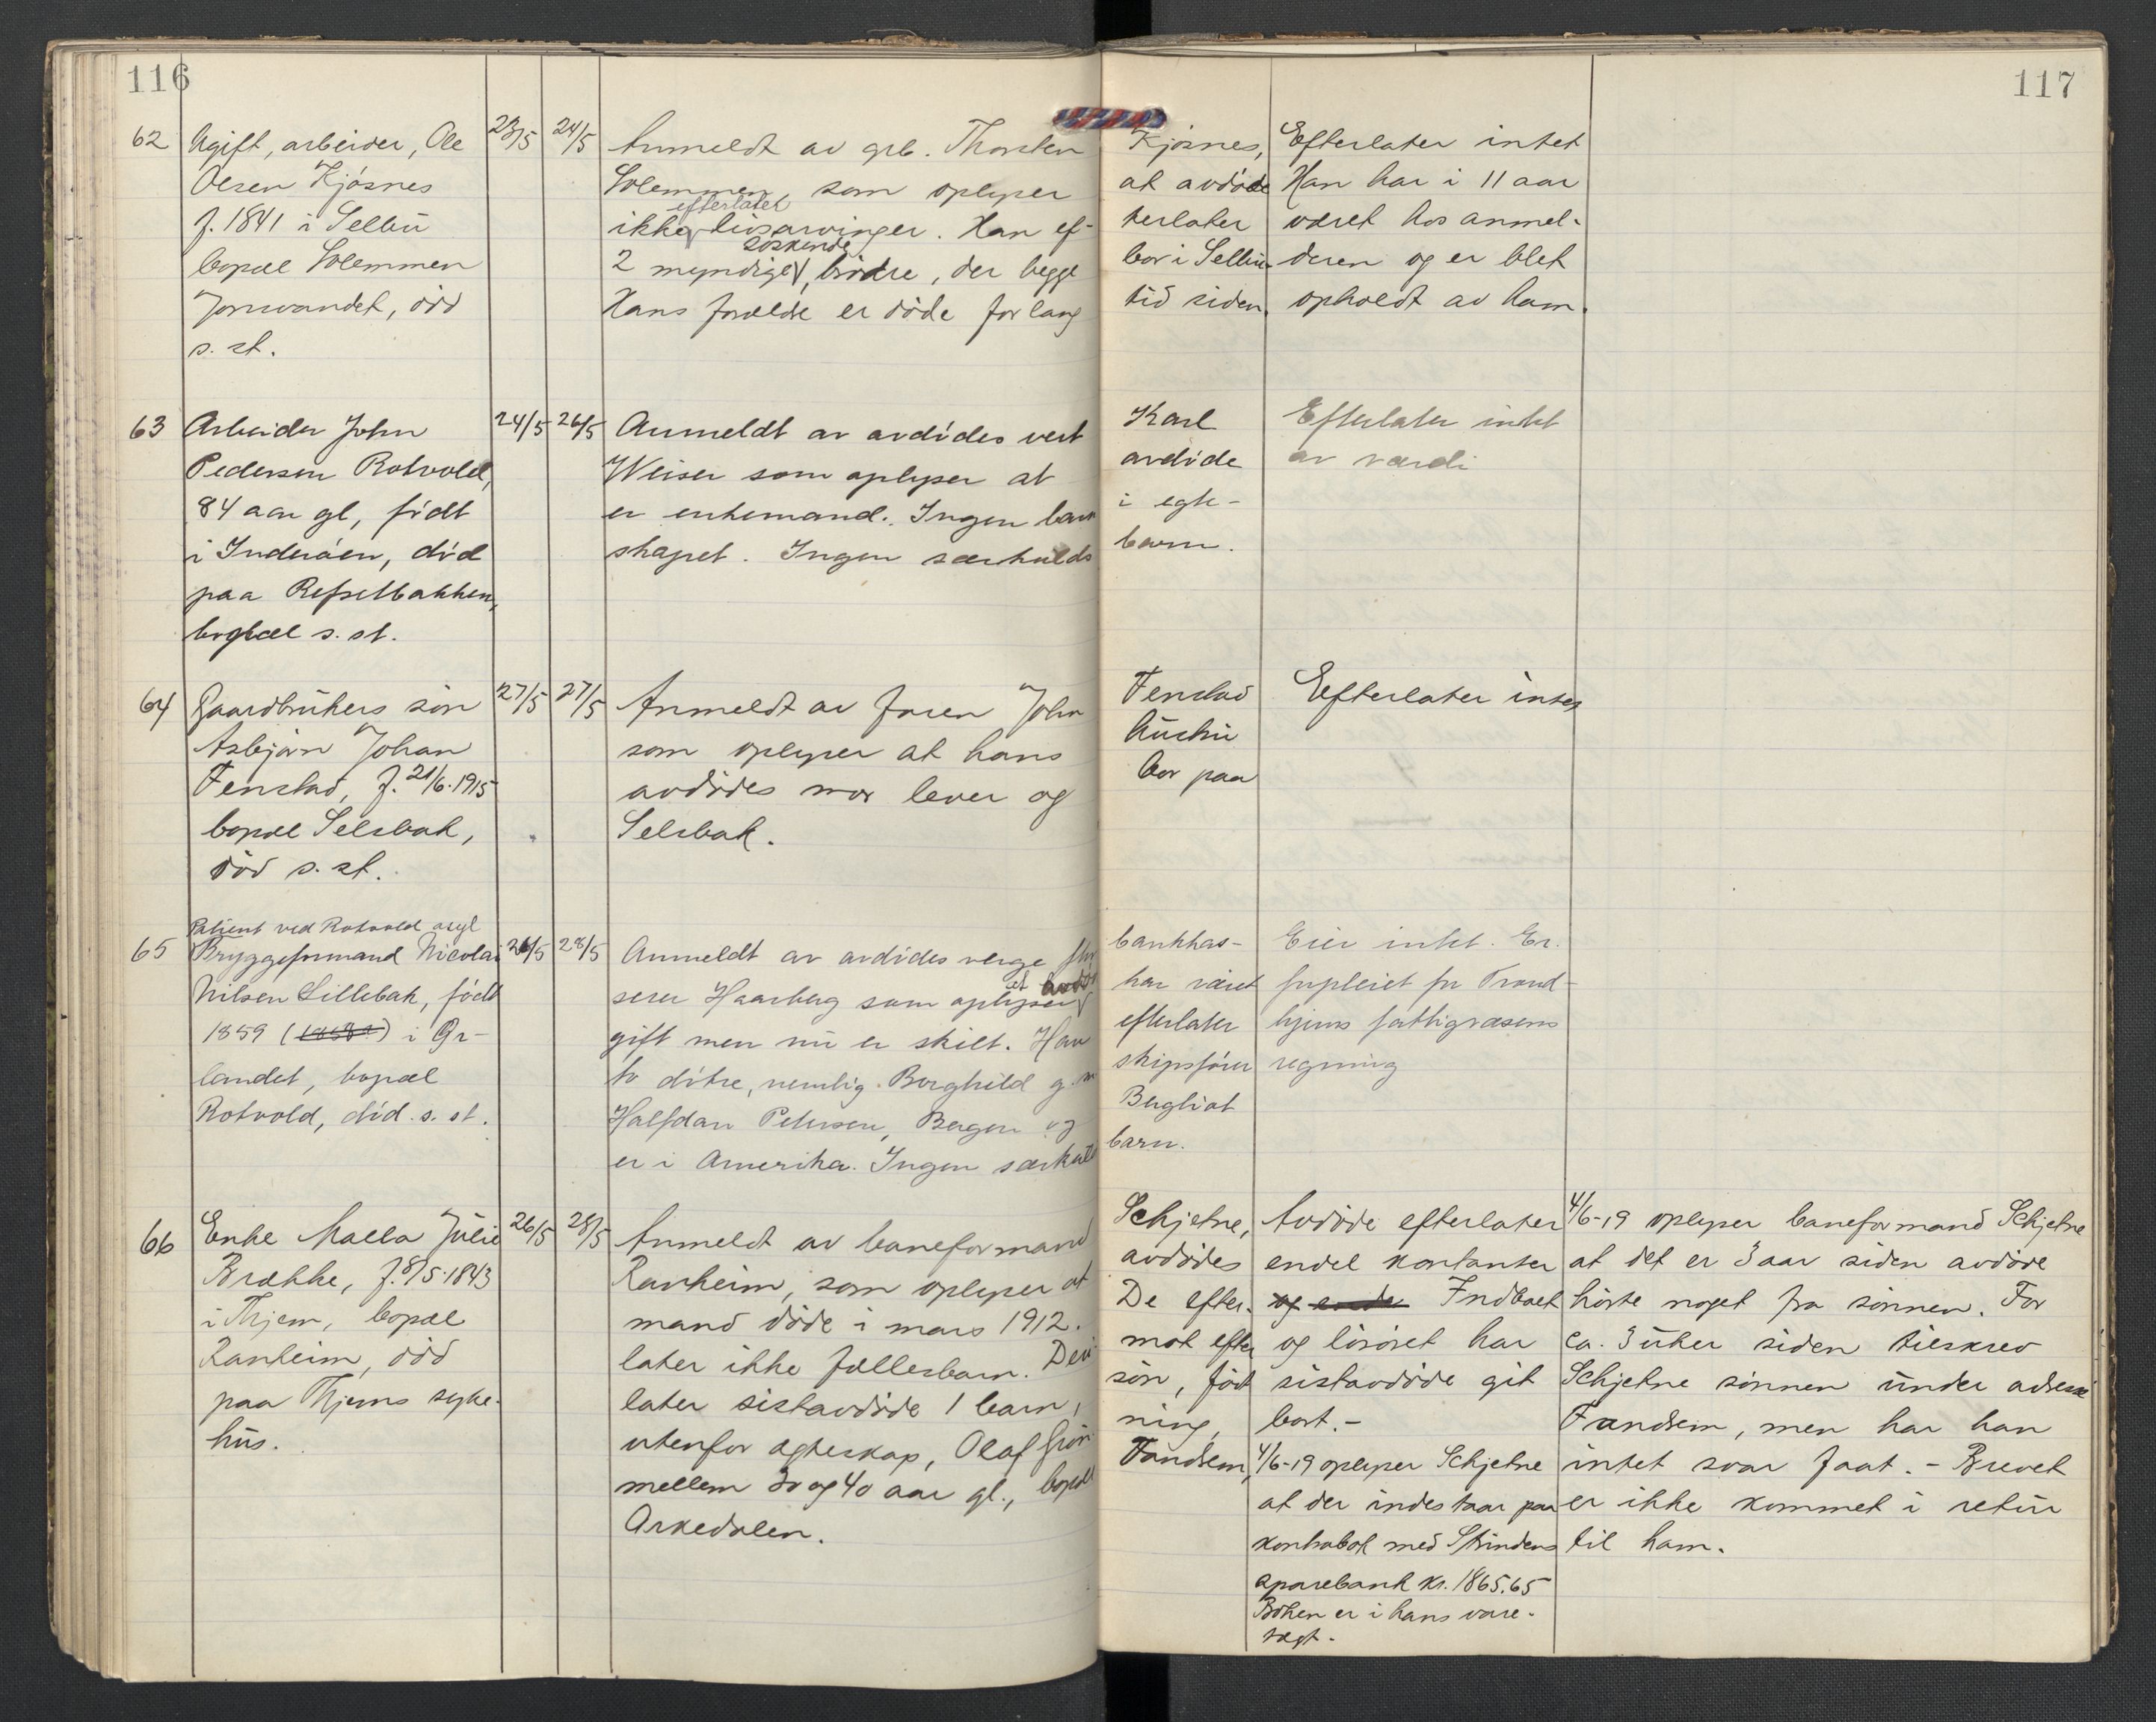 116
117
62 Ugift, arbeider, Ole 23/5 24/5 Anmeldt av grb. Thorsten Kjøsnes, Efterlater intet
Olsen Kjøsnes Solemmen, som oplyser at avdøde Han har i 11 aar
efterlatet
f. 1841 i Selbu ikke livsarvinger. Han ef- terlater været hos anmel-
søskende
bopæl Solemmen 2 myndige, brødre, der begge bor i Selbu. deren og er blet
Jonsvandet, død Hans forældre er døde for lang tid siden. opholdt av ham.
s. st.
63 Arbeider John 24/5 26/5 Anmeldt av avdødes vert Karl Efterlater intet
Pedersen Rotvold, Weiser som oplyser at avdøde av værdi
84 aar gl, født er enkemand. Ingen barn i egte-
i Inderøen, død skapet. Ingen særkulds barn.
paa Refsetbakken,
bopæl s. st.
64 Gaardbrukers søn 27/5 27/5 Anmeldt av faren John Fenstad Eefterlater intet
Asbjørn Johan som oplyser at hans hustru
Fenstad, f. 21/6.1915 avdødes mor lever og bor paa
bopæl Selsbak, Selsbak.
død s. st.
Patient ved Rotvold asyl
65 Bryggeformand Nicolai 26/5 28/5 Anmeldt av avdødes verge bankkas- Eier intet. Er
Nilsen Lillebak, født serer Haarberg som oplyser at avdøde har været forpleiet for Trond-
1859 () i Ør- gift men nu er skilt. Han efterlater hjems fattigvæsens
landet, bopæl to døtre, nemlig. Borghild g. m skipsfører regning
Rotvold, død. s. st. Halfdan Petersen, Bergen og Bergliot
er i Amerika. Ingen særkuld barn.
66 Enke Malla Julie 26/5 28/5 Anmeldt av baneformand Schjetne, Avdøde efterlater 4/6-19 oplyser baneformand Schjetne
Brække, f. 8/5.1843 Ranheim, som oplyser at avdødes endel kontanter at det er 3 aar siden avdøde
i Thjem, bopæl mand døde i mars 1912. De efter- og ende Indboet hørte noget fra sønnen. For
Ranheim, død later ikke fællesbarn. Deri- mot efter og løsøret har ca. 3 uker siden tilskrev
paa Thjems syke- later sistavdøde 1 barn, søn, født sistavdøde git Schjetne sønnen under adresse
hus. utenfor ægteskap, Olaf Grøn- ning, bort.- Fandrem, men har han
mellem 30 og 40 aar gl., bopæl Fandrem, 4/6-19 oplyser Schjetne intet svar faat. - Brevet
Orkedalen. at der indestaar paa er ikke kommet i retur
kontrabok med Strindens til ham.
sparebank kr. 1865.65
Boken er i hans vare-
tægt.